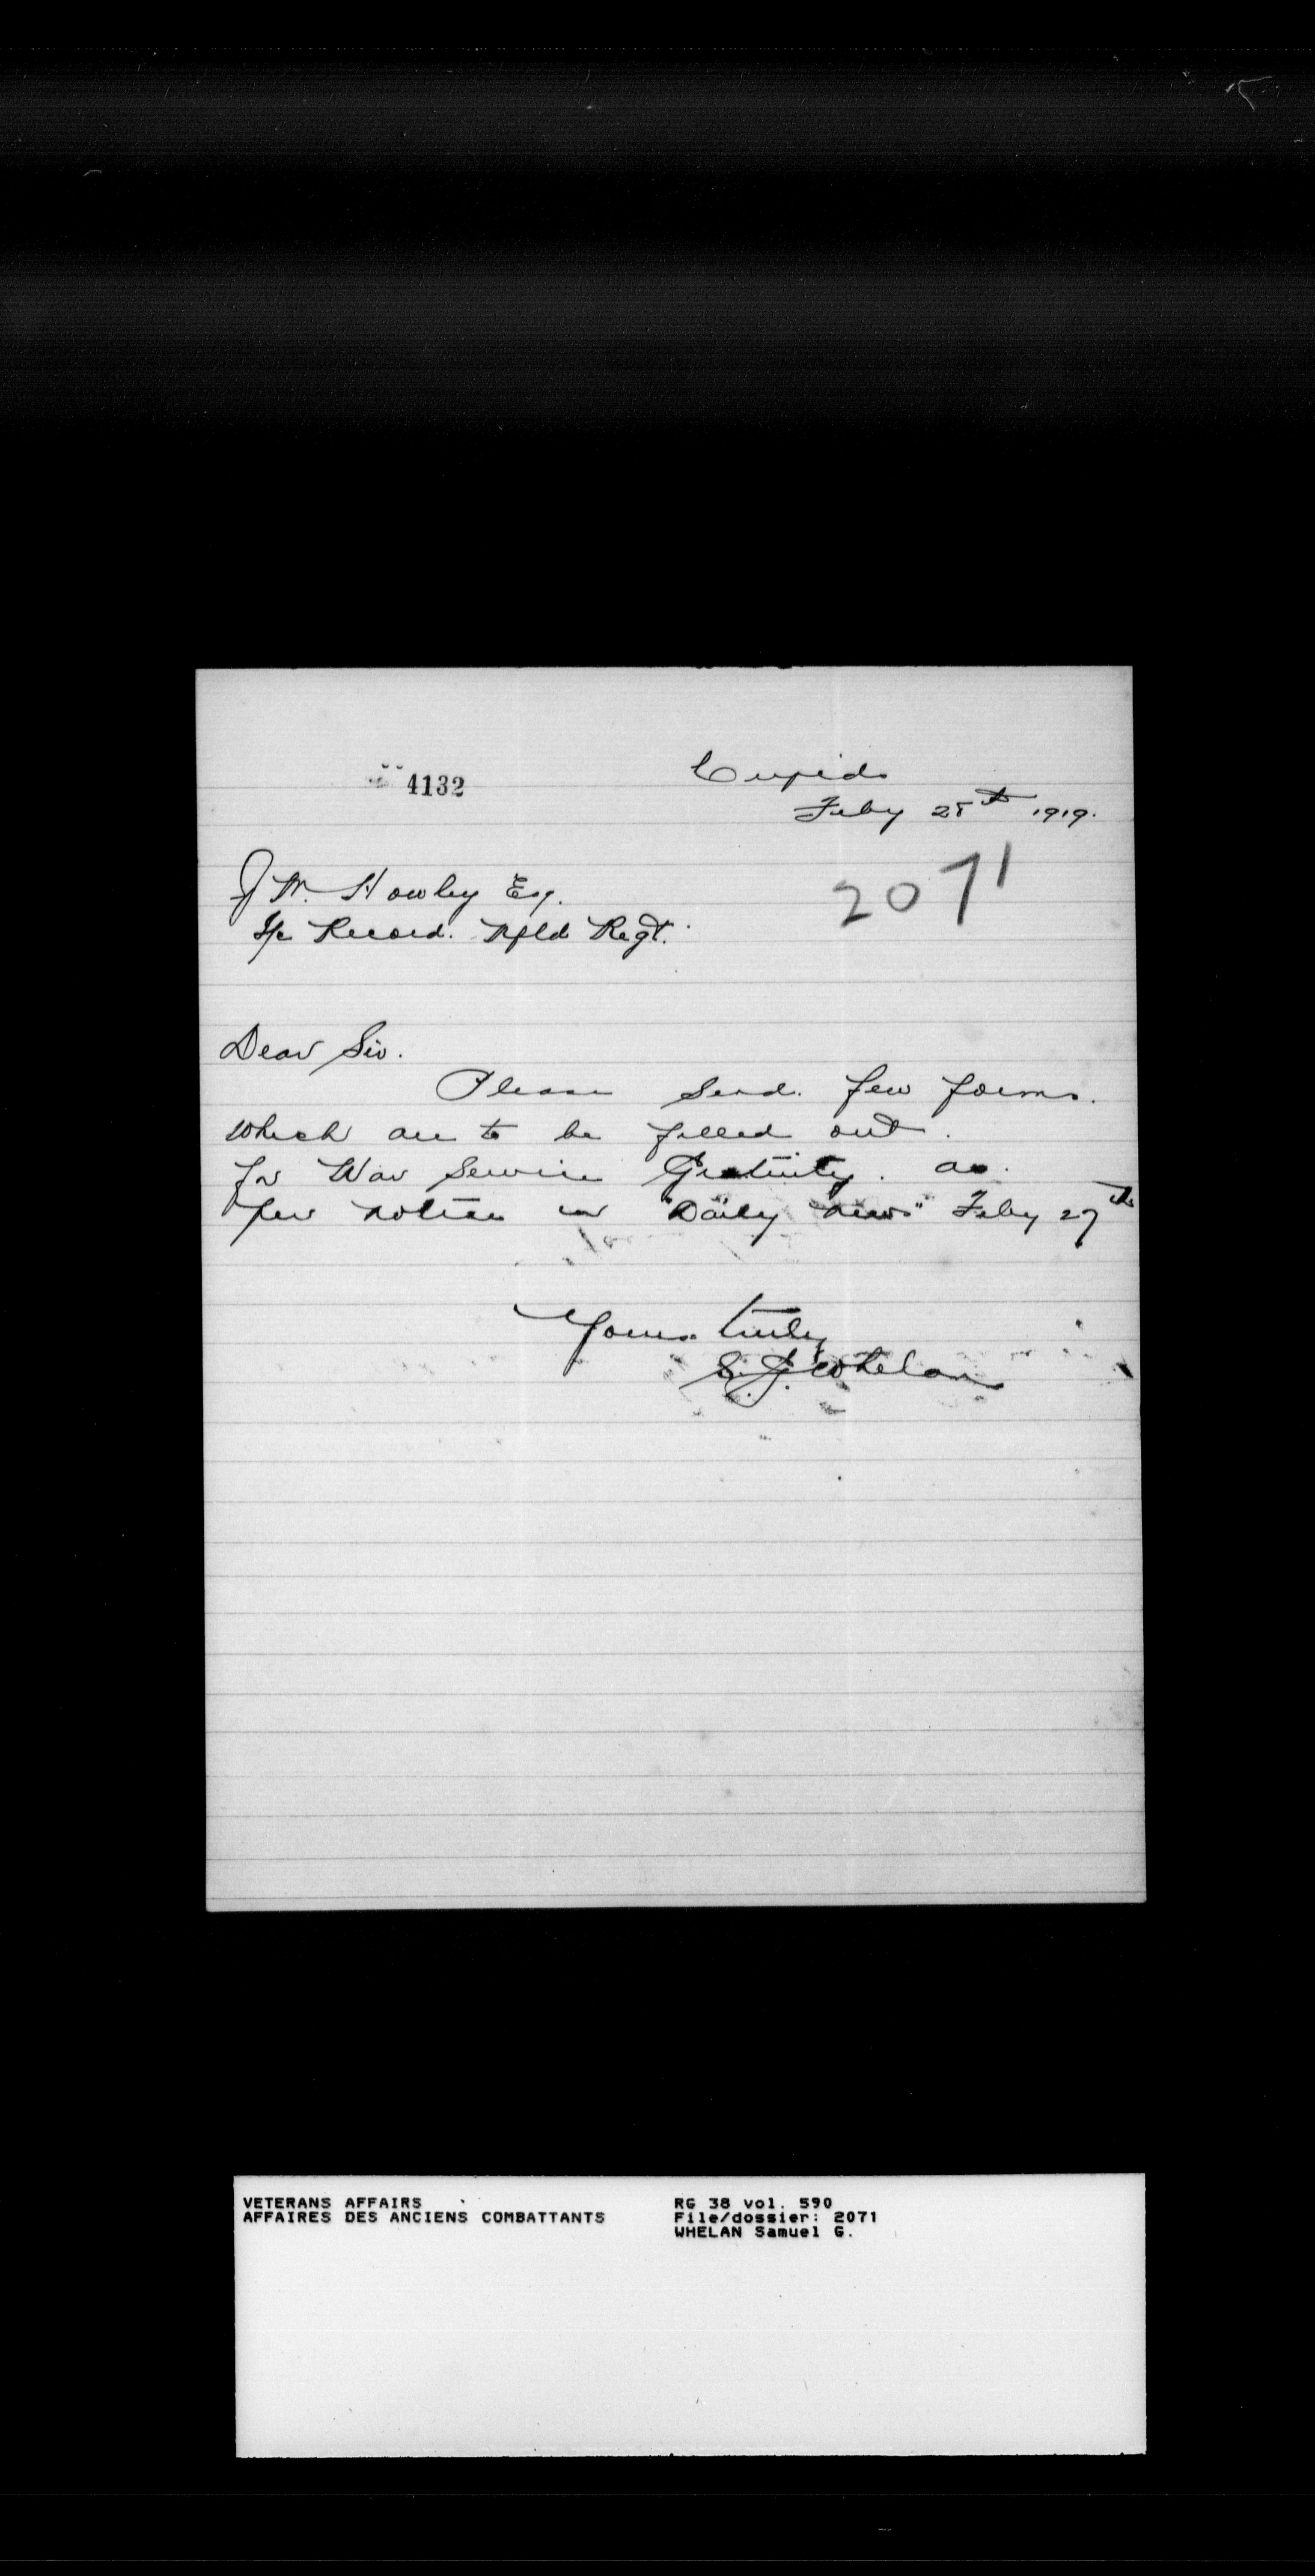 4132
Cupids
Feby 28th 1919.
2071
J M. Howley Esq.
I/c Record. Nfld Regt.
Dear Sir.
Please send. few forms.
which are to be filled out.
for War Service Gratuity. as.
per notice in "Daily News" Feby 27th
Yours truly
S. G. Whelan
VETERANS AFFAIRS
AFFAIRES DES ANCIENS COMBATTANTS
RG 38 vol. 590
File/dossier: 2071
WHELAN Samuel G.